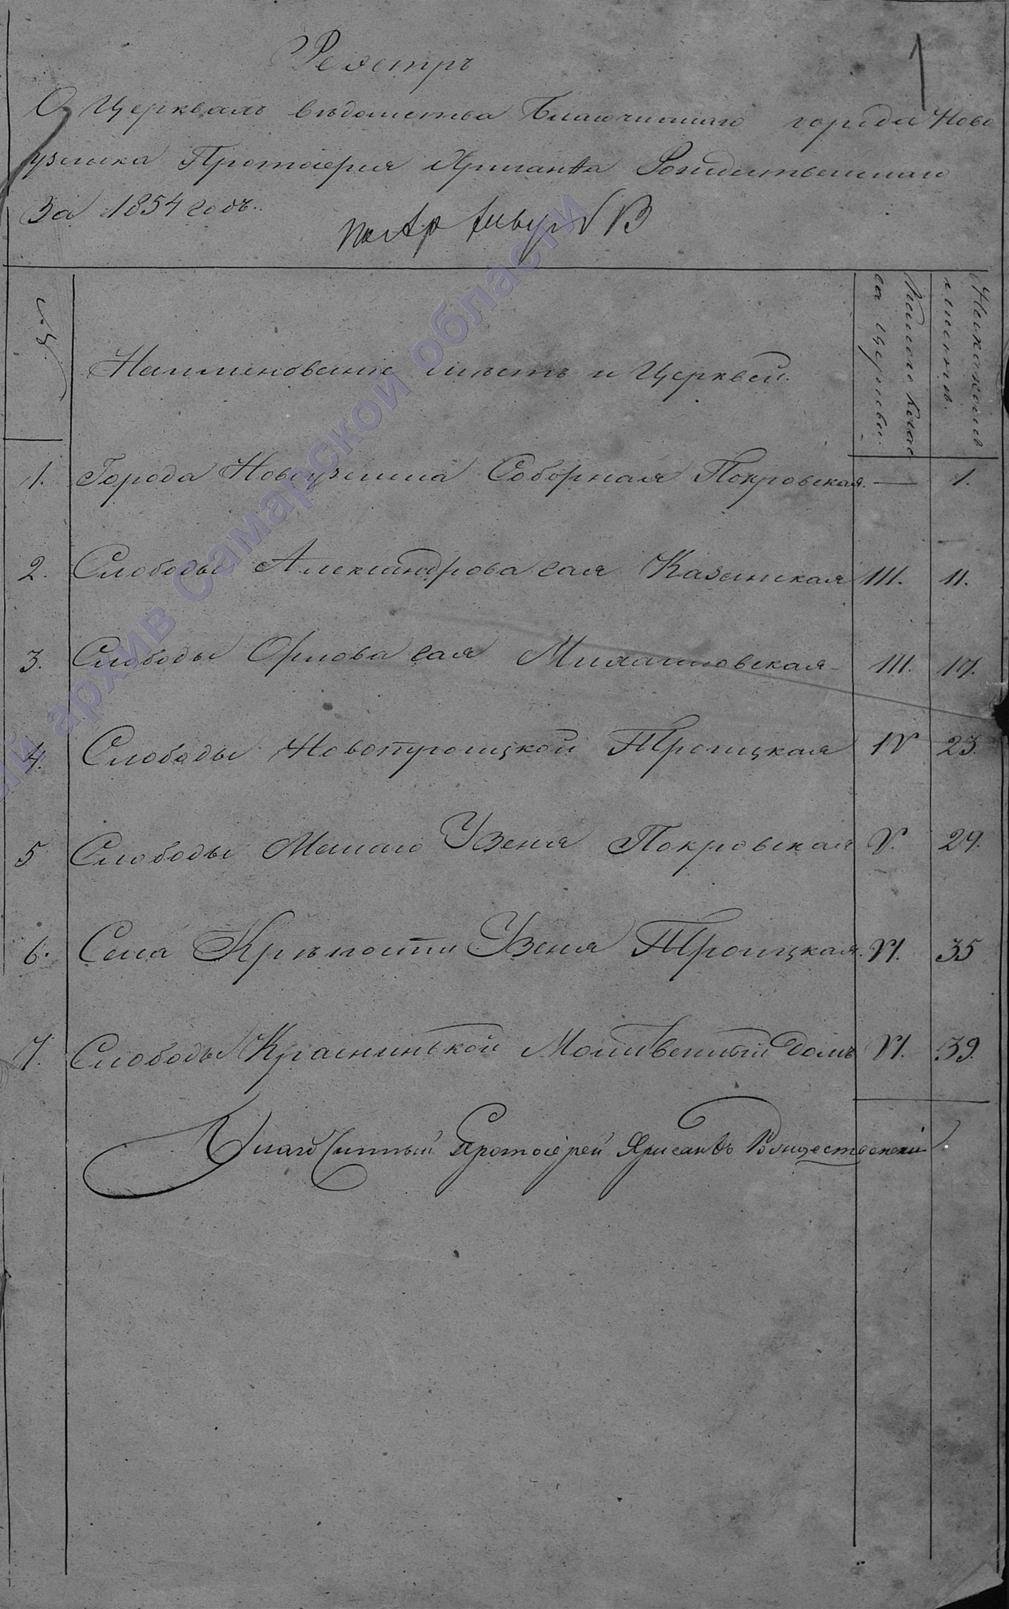 1
Реэстръ
О Церквахъ вѣдомства Благочиннаго города Ново
узенска Протоіерея Хрисанѳа Рождественскаго
За 1854 годъ.
№
Наименованіе мѣстъ и Церквей.
Какого клас
са церкви.
На какомъ
листѣ.
1. Города Новоузенска Соборная Покровская. — 1.
2. Слободы Александрова гая Казанская III. 11.
3. Слободы Орлова гая Михаиловская III. 17.
4. Слободы Новотроицкой Троицкая IV 23.
5 Слободы Малаго Узеня Покровская V. 29.
6. Села Крѣпости Узеня Троицкая. VI. 35
7. Слободы Красненькой Молитвенный домъ VI. 39.
Благочинный Протоіерей Хрисанѳъ Рождественскій.
архив Самарской области